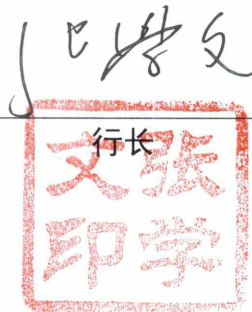 张学文
行长
张学
文印